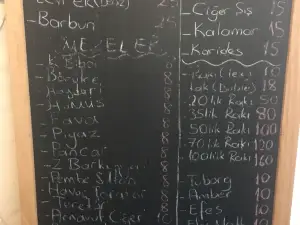 LEVREK (Deniz) 25
- Barbun 25
MEZELER
- K. Biber 8
- Börülce 8
- Haydari 8
- Humus 8
- Fava 8
- Piyaz 8
- Pancar 8
- Z. Barbunya 8
- Pembe Sultan 8
- Havuç Tarator 8
- Arnavut Ciğeri 10
- Ciğer Şiş 15
- Kalamar 15
- Karides 15
- Tek (Duble) 18
- 20 lik Rakı 50
- 35 lik Rakı 80
- 50 lik Rakı 100
- 70 lik Rakı 120
- 100 lük Rakı 160
- Tuborg 10
- Amber 10
- Efes 10